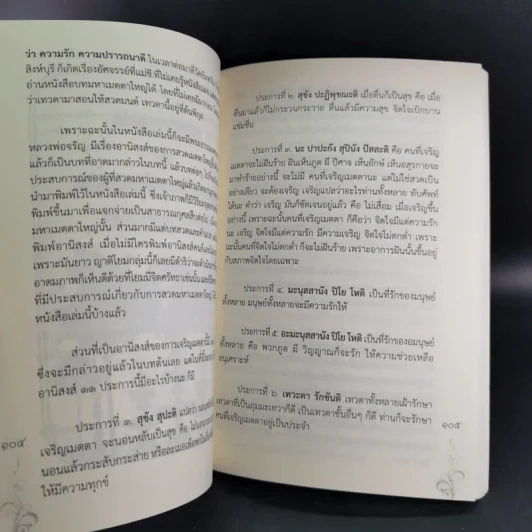 ว่า ความรัก ความปรารถนาดี ในเวลาต่อมาที่วัด
สิงห์บุรี ก็เกิดเรื่องอัศจรรย์ที่แม่ชี ที่ไม่เคยรู้หนังสือ
อ่านหนังสือบทมหาเมตตาใหญ่ได้ โดยที่ไม่เคย
ว่าเทวดามาสอนให้สวดมนต์ เทวดานี้อยู่ที่ต้นพิกุล
เพราะฉะนั้นในหนังสือเล่มนี้ก็จะมีพระธรรม
หลวงพ่อจรัญ มีเรื่องอานิสงส์ของการสวดมหาเมตตาใหญ่
แล้วก็เป็นบทที่อาตมากล่าวในบทนี้ แล้วบทต่อๆ ไป
ประสบการณ์ของผู้ที่สวดมหาเมตตาใหญ่แล้ว
นำมาพิมพ์ไว้ในหนังสือเล่มนี้ ซึ่งเจ้าภาพก็มี
พิมพ์ขึ้นมาเพื่อแจกจ่ายเป็นสาธารณกุศลสืบต่อไป
มหาเมตตาใหญ่นั้น ส่วนมากก็มีแต่บทสวด
พิมพ์อานิสงส์ เมื่อไม่มีใครพิมพ์อานิสงส์คนก็
เพราะมันยาว ญาติโยมกลุ่มนี้ก็เลยมีดำริว่า
อาตมภาพก็เห็นดีด้วยที่โยมมีจิตศรัทธาเช่นนั้น
ที่มีประสบการณ์เกี่ยวกับการสวดมหาเมตตาใหญ่
หนังสือเล่มนี้บ้างแล้ว
ส่วนที่เป็นอานิสงส์ของการเจริญเมตตานี้
ซึ่งจะมีกล่าวอยู่แล้วในบทต้นเลย แต่ในที่นี้
อานิสงส์ ๑๑ ประการนี้มีอะไรบ้างนะ ก็มี
ประการที่ ๑. สุขัง สุปะติ แปลว่า
เจริญเมตตา จะนอนหลับเป็นสุข คือ ไม่
นอนแล้วกระสับกระส่าย หรือละเมอ
ให้มีความทุกข์
๑๐๔
ประการที่ ๒. สุขัง ปะฏิพุชฌะติ เมื่อตื่นก็เป็นสุข คือ เมื่อ
ตื่นมาแล้วก็ไม่กระวนกระวาย ตื่นแล้วมีความสุข จิตใจเบิกบาน
แช่มชื่น
ประการที่ ๓. นะ ปาปะกัง สุปินัง ปัสสะติ คือ คนที่เจริญ
เมตตาจะไม่ฝันร้าย ฝันเห็นภูต ผี ปีศาจ เห็นยักษ์ เห็นอสุรกายจะ
มาทำร้ายอย่างนี้ จะไม่มี คนที่เจริญเมตตานะ แต่ไม่ใช่สวดเป็น
อย่างเดียว จะต้องเจริญ เจริญแปลว่าอะไรท่านทั้งหลาย ทับศัพท์
ได้นะ คำว่า เจริญ มันก็ชัดเจนอยู่แล้ว คือ ไม่เสื่อม เมื่อเจริญขึ้น
อย่างนี้ เพราะฉะนั้นคนที่เจริญเมตตา ก็คือว่า จิตใจมีแต่ความรัก
นะ เจริญ จิตใจมีแต่ความรัก มีความเจริญ จิตใจไม่ตกต่ำ เพราะ
ฉะนั้นคนที่จิตใจไม่ตกต่ำ ก็จะไม่ฝันร้าย เพราะอาการฝันนั้นขึ้นอยู่
กับสภาพจิตใจโดยเฉพาะ
ประการที่ ๔. มะนุสสานัง ปิโย โหติ เป็นที่รักของมนุษย์
ทั้งหลาย มนุษย์ทั้งหลายจะมีความรักให้
ประการที่ ๕. อะมะนุสสานัง ปิโย โหติ เป็นที่รักของอมนุษย์
ทั้งหลาย คือ พวกภูต ผี วิญญาณก็จะรัก ให้ความช่วยเหลือ
อนุเคราะห์
ประการที่ ๖. เทวะตา รักขันติ เทวดาทั้งหลายเฝ้ารักษา
เทวดาที่เป็นภุมมะเทวาก็ดี เป็นเทวดาชั้นอื่นๆ ก็ดี ท่านก็จะรักษา
คนที่เจริญเมตตาอยู่เป็นประจำ
๑๐๕